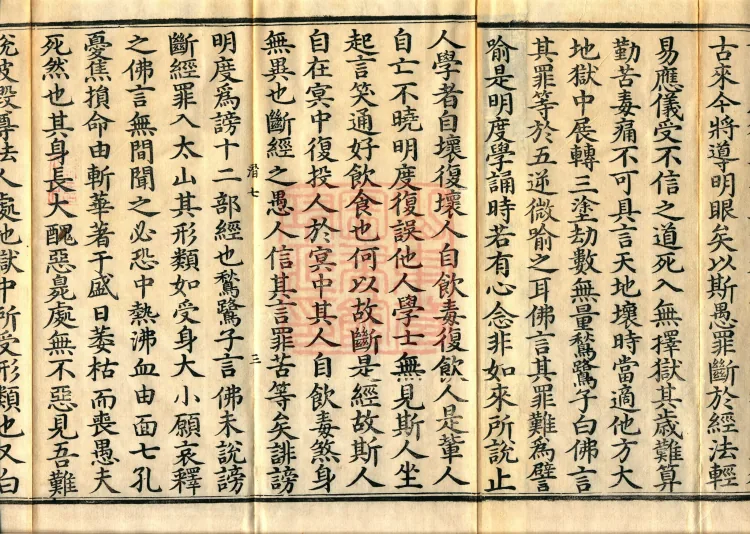 古來今將導明眼矣以斯愚罪斷於經法輕
易應儀受不信之道死入無擇獄其歲難算
勤苦毒痛不可具言天地壞時當適他方大
地獄中展轉三塗劫數無量鶖鷺子白佛言
其罪等於五逆微喻之耳佛言其罪難爲譬
喻是明度學誦時若有心念非如來所說止
人學者自壞復壞人自飲毒復飲人是輩人
自亡不曉明度復誤他人學士無見斯人坐
起言笑通好飲食也何以故斷是經故斯人
自在冥中復投人於冥中其人自飲毒煞身
無異也斷經之愚人信其言罪苦等矣誹謗
潛七 三
明度爲謗十二部經也鶖鷺子言佛未說謗
斷經罪入太山其形類如受身大小願哀釋
之佛言無間聞之必恐中熱沸血由面七孔
憂焦損命由斬華著于盛日萎枯而喪愚夫
死然也其身長大醜惡臰處無不惡見吾難
說彼毀法人處地獄中所受形類也又白